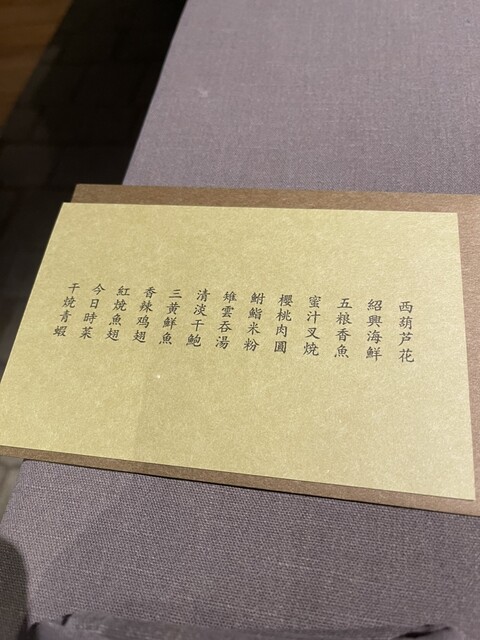 西葫芦花
紹興海鮮
五粮香魚
蜜汁叉燒
櫻桃肉圓
鮒鮨米粉
雉雲吞湯
清淡干鮑
三黄鮮魚
香辣鸡翅
紅燒魚翅
今日時菜
干燒青蝦